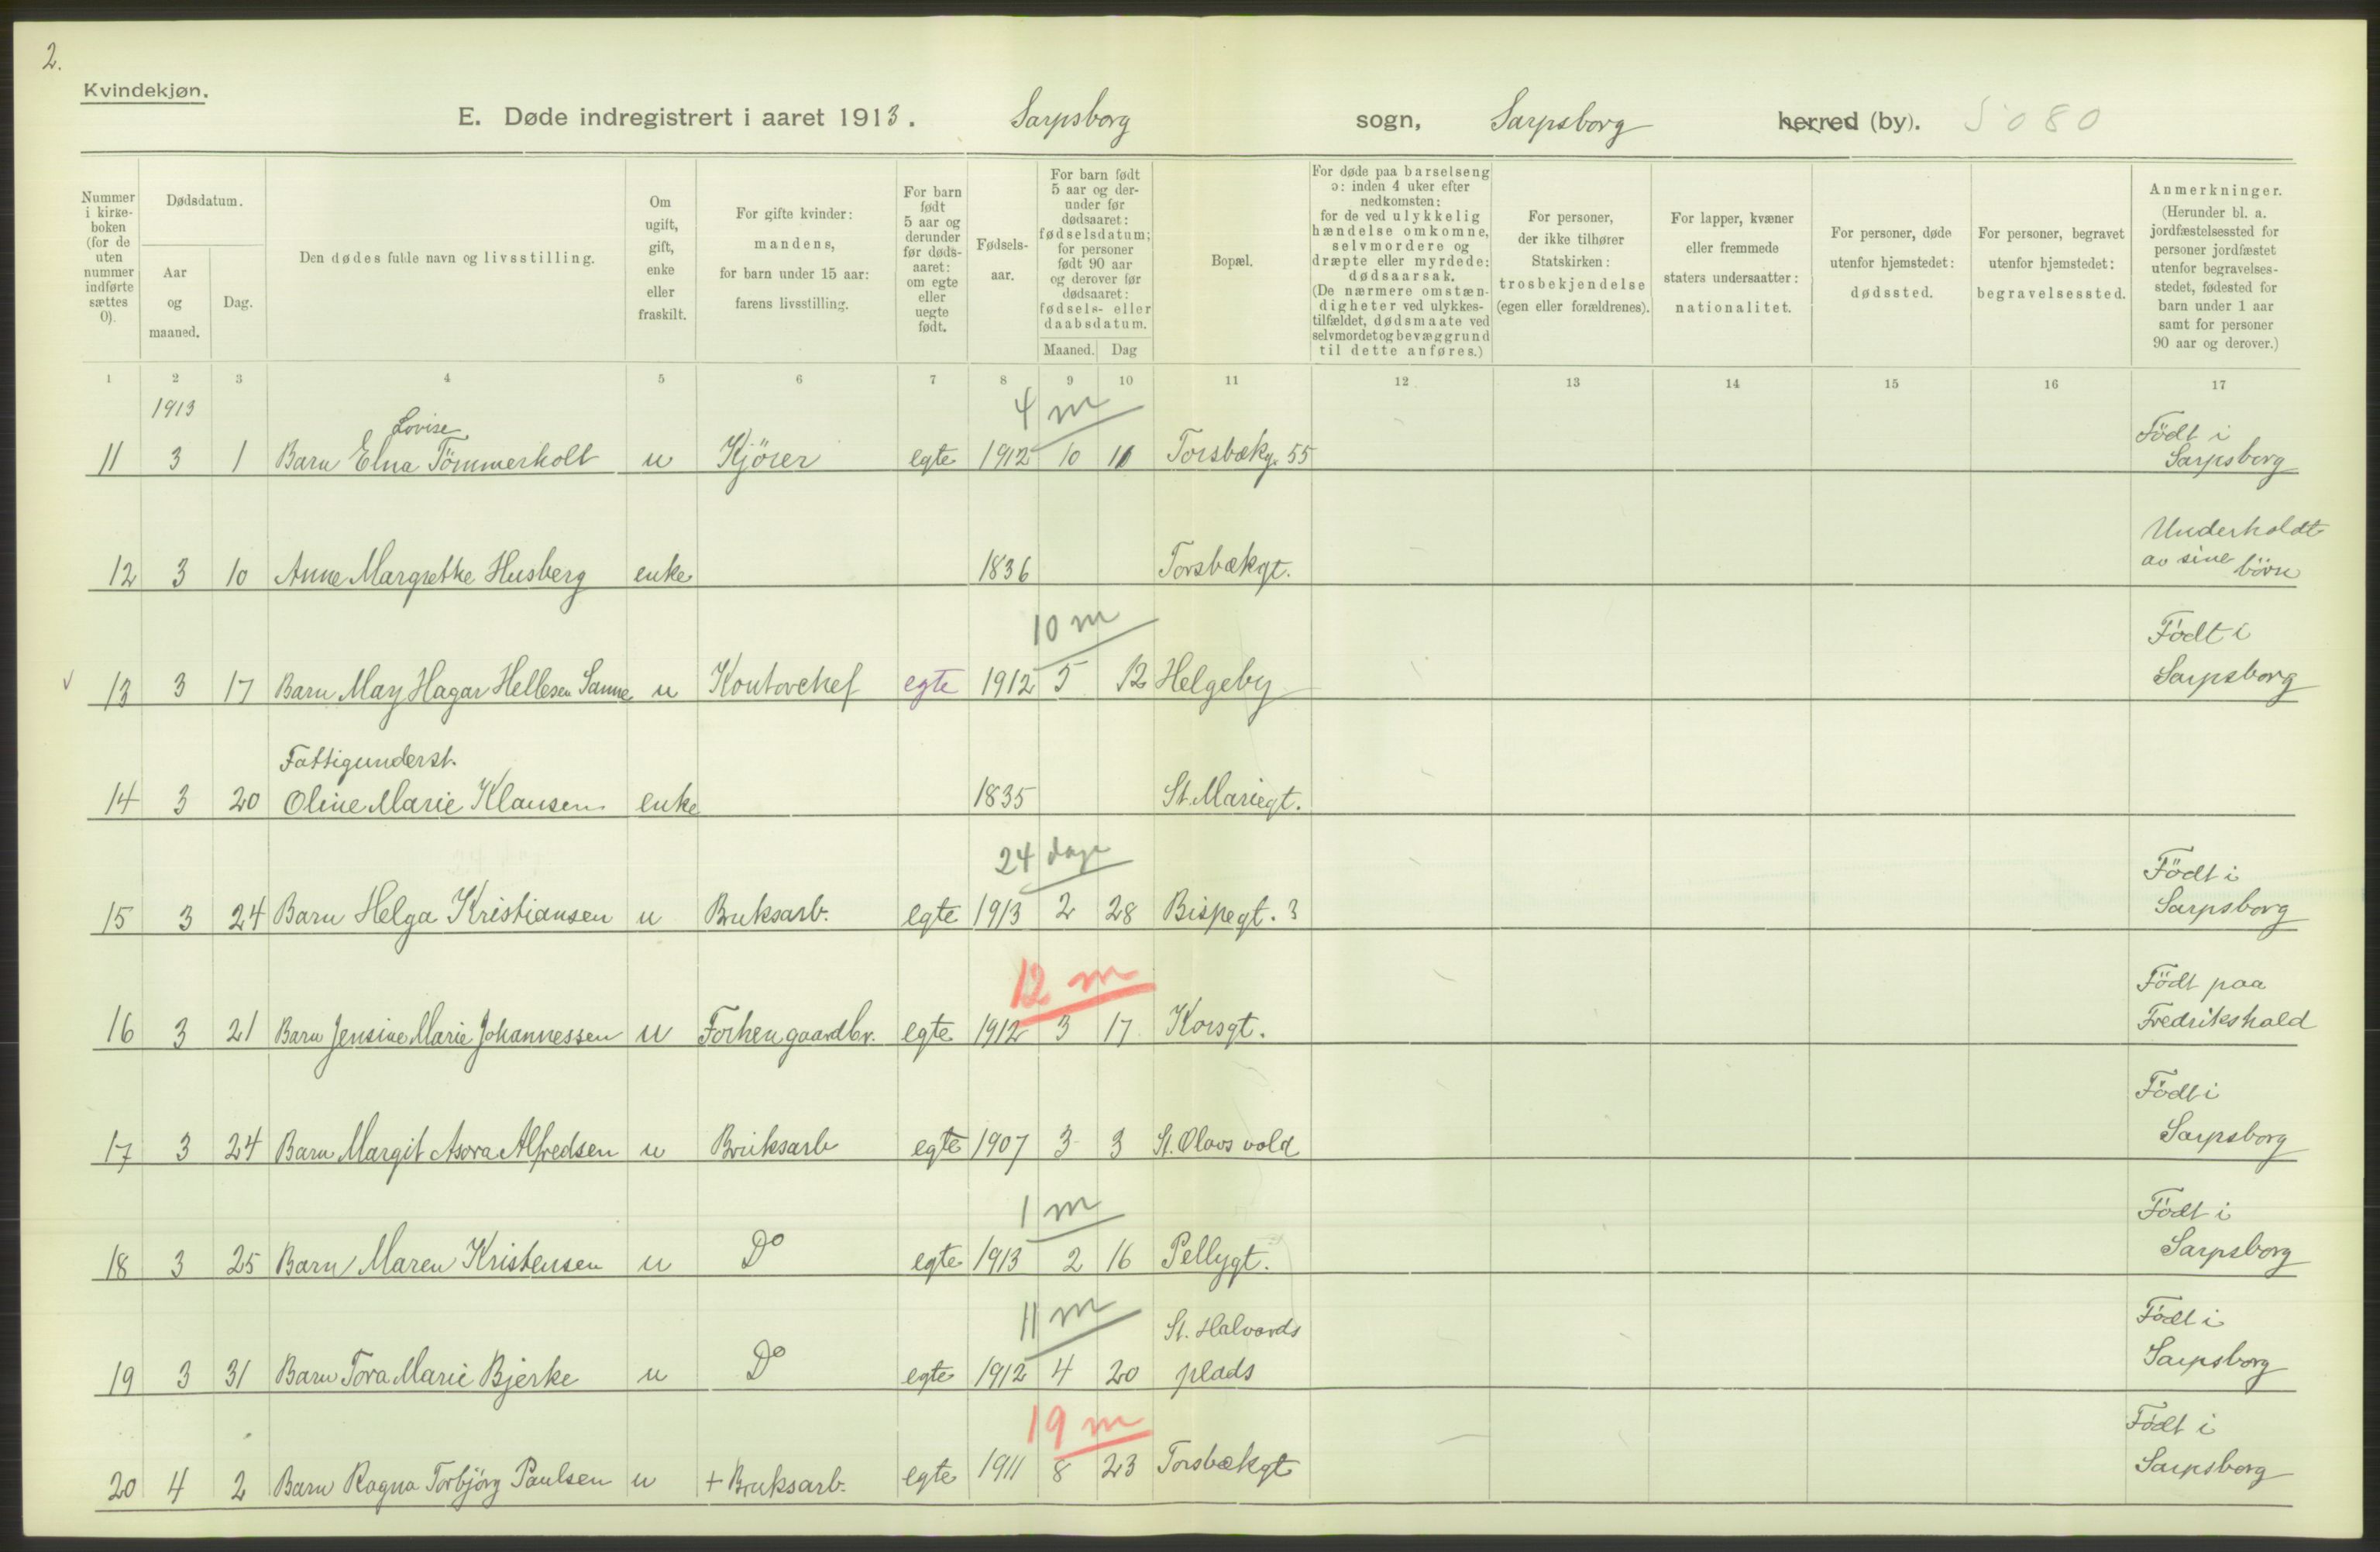 2.
Kvindekjøn.
E. Døde indregistrert i aaret 1913. Sarpsborg sogn, Sarpsborg herred (by). 5080
Nummer i kirke-boken (for de uten nummer indførte sættes 0).
Dødsdatum.
Aar og maaned.
Dag.
Den dødes fulde navn og livsstilling.
Om ugift, gift, enke eller fraskilt.
For gifte kvinder: mandens, for barn under 15 aar: farens livsstilling.
For barn født 5 aar og derunder før døds-aaret: om egte eller uegte født.
Fødsels-aar.
For barn født 5 aar og der-under før dødsaaret: fødselsdatum; for personer født 90 aar og derover før dødsaaret: fødsels- eller daabsdatum.
Maaned. Dag
Bopæl.
For døde paa barselseng ɔ: inden 4 uker efter nedkomsten: for de ved ulykkelig hændelse omkomne, selvmordere og dræpte eller myrdede: dødsaarsak. (De nærmere omstæn-digheter ved ulykkes-tilfældet, dødsmaate ved selvmordet og bevæggrund til dette anføres.)
For personer, der ikke tilhører Statskirken: trosbekjendelse (egen eller forældrenes).
For lapper, kvæner eller fremmede staters undersaatter: nationalitet.
For personer, døde utenfor hjemstedet: dødssted.
For personer, begravet utenfor hjemstedet: begravelsessted.
Anmerkninger. (Herunder bl. a. jordfæstelsessted for personer jordfæstet utenfor begravelses-stedet, fødested for barn under 1 aar samt for personer 90 aar og derover.)
1 2 3 4 5 6 7 8 9 10 11 12 13 14 15 16 17
1913
4 m
Lovise
11 3 1 Barn Elna Tömmerholt u Kjörer egte 1912 10 11 Torsbækg. 55 Födt i Sarpsborg
12 3 10 Anne Margrethe Husberg enke 1836 Torsbækgt. Underholdt av sine börn
10 m
13 3 17 Barn May Hagar Hellesen Sanne u Kontorchef egte 1912 5 12 Helgeby Födt i Sarpsborg
Fattigunderst.
14 3 20 Oline Marie Klausen enke 1835 St. Mariegt.
24 dage
15 3 24 Barn Helga Kristiansen u Bruksarb. egte 1913 2 28 Bispegt. 3 Födt i Sarpsborg
12 m
16 3 21 Barn Jensine Marie Johannessen u Forhen gaardbr. egte 1912 3 17 Korsgt. Födt paa Fredrikshald
17 3 24 Barn Margit Asora Alfredsen u Bruksarb egte 1907 3 3 St. Olavs vold Födt i Sarpsborg
1 m
18 3 25 Barn Maren Kristensen u Do egte 1913 2 16 Pellygt. Födt i Sarpsborg
11 m
19 3 31 Barn Tora Marie Bjerke u Do egte 1912 4 20 St. Halvards plads Födt i Sarpsborg
19 m
20 4 2 Barn Ragna Torbjörg Paulsen u + Bruksarb. egte 1911 8 23 Torsbækgt Födt i Sarpsborg